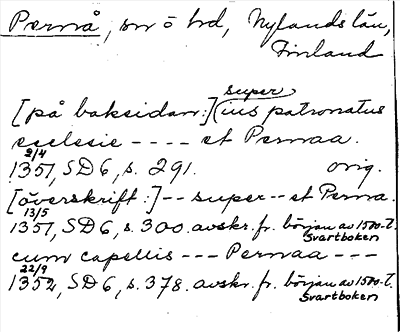 Pernå, sn o hd, Nylands län,
Finland
super
[på baksidan:] (ius patronatus
ecclesie - - - - et Pernaa.
2/4
1351, SD6, s. 291. orig.
[överskrift:] - - super - - et Perna.
13/5
1351, SD6, s. 300. avskr. fr. början av 1500-t.
Svartboken
cum capellis - - - Pernaa - - -
22/9
1352, SD6, s. 378. avskr. fr. början av 1500-t.
Svartboken